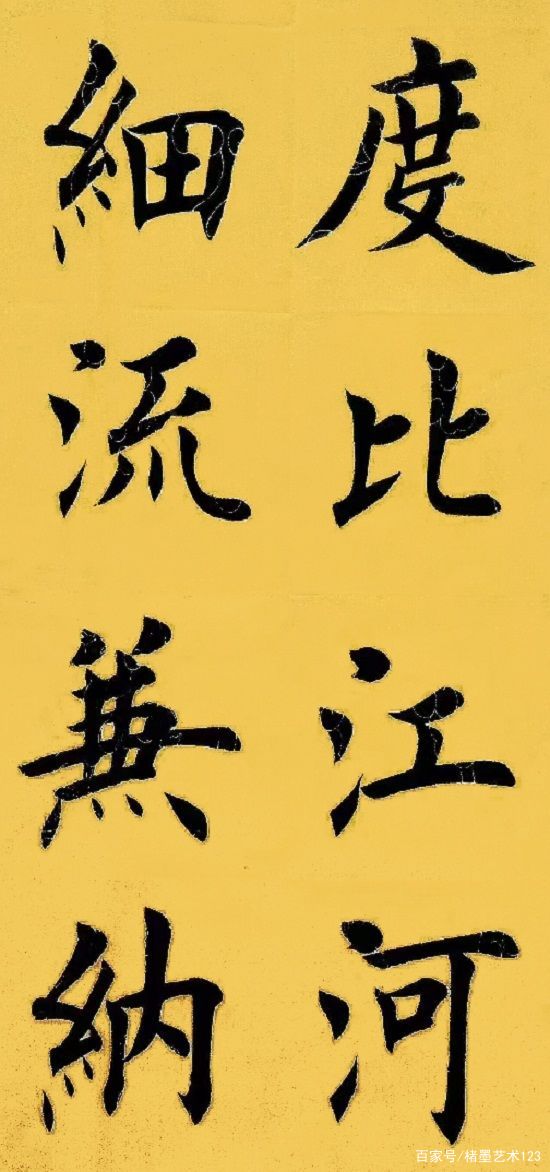 度比江河
細流兼納
百家号/楮墨艺术123